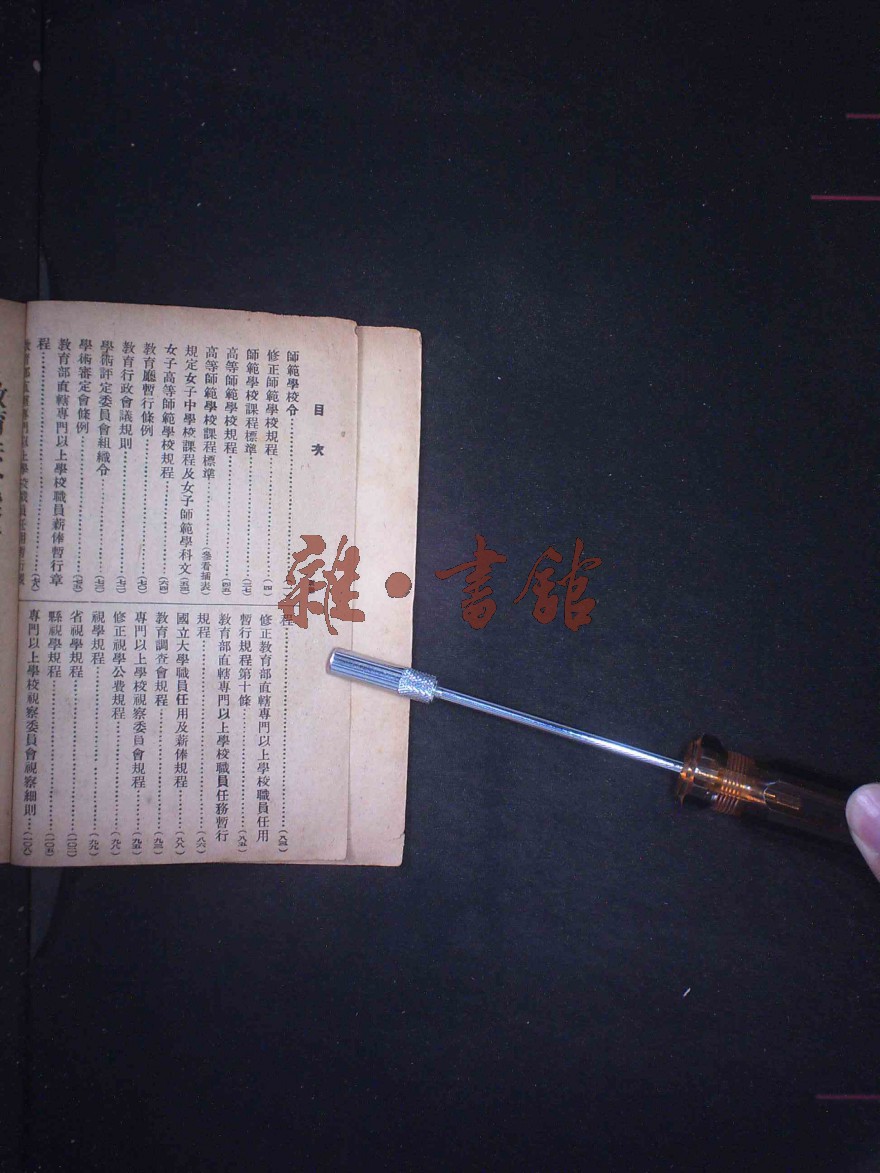 目次
師範學校令
修正師範學校規程……(一四)
師範學校課程標準……(二七)
高等師範學校規程……(四五)
高等師範學校課程標準……(參看插表)
規定女子中學校課程及女子師範學科文(五三)
女子高等師範學校規程……(六四)
教育廳暫行條例……(七〇)
教育行政會議規則……(七二)
學術評定委員會組織令……(七三)
學術審定會條例……(七五)
教育部直轄專門以上學校職員薪俸暫行章
程……(七八)
教育部直轄專門以上學校職員任用暫行規
程……(八三)
修正教育部直轄專門以上學校職員任用
暫行規程第十條……(八五)
教育部直轄專門以上學校職員任務暫行
規程……(八六)
國立大學職員任用及薪俸規程……(八八)
教育調查會規程……(九三)
專門以上學校視察委員會規程……(九五)
修正視學公費規程……(九八)
視學規程……(九九)
省視學規程……(一〇三)
縣視學規程……(一〇五)
專門以上學校視察委員會視察細則……(一〇八)
雜·書館